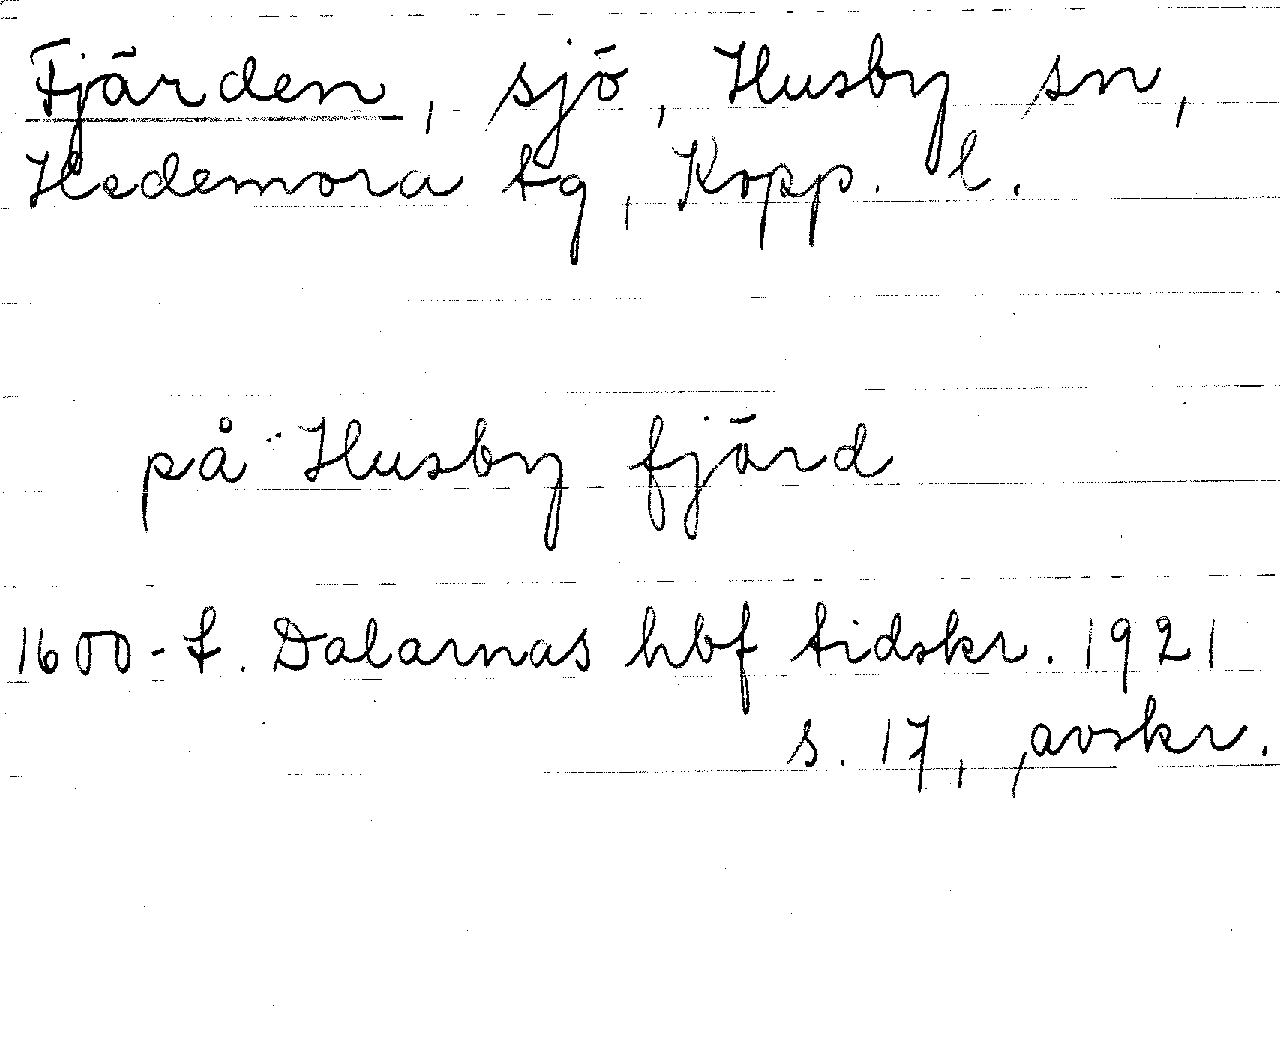 Fjärden, sjö, Husby sn,
Hedemora tg, Kopp. l.
på Husby fjärd
1600-t. Dalarnas hbf tidskr. 1921
s. 17, avskr.